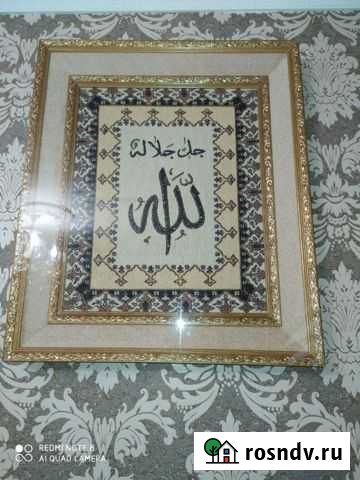 جل جلاله
الله
REDMI NOTE 8
AI QUAD CAMERA
rosndv.ru